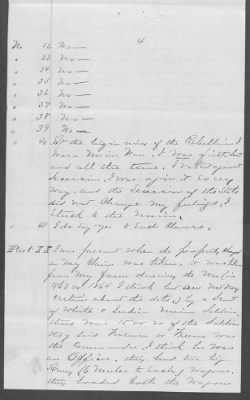 4
No 32 No—
" 33 No—
" 34 No—
" 35 No—
" 36 No—
" 37 No—
" 38 No—
" 39 No—
" 40 At the beginning of the Rebellion I
was a Union Man. I was first last
and all the time. I voted against
Secession. I was against it every
way. and the Secession of the State
did not Change my feelings, I
Stuck to the Union.
I do say yes to Each Clause.
Part II I am present when the property
in my Claim was taken. it was
from my farm during the War in
1863 or 1864 I think but am not very
certain about the date, by a
of White & Indian Union Soldiers
there was of the Soldiers
they said or was
the Commander. I think he was
an Officer. they had two big
Army (6 Mules to Each) Wagons.
they loaded both the Wagons